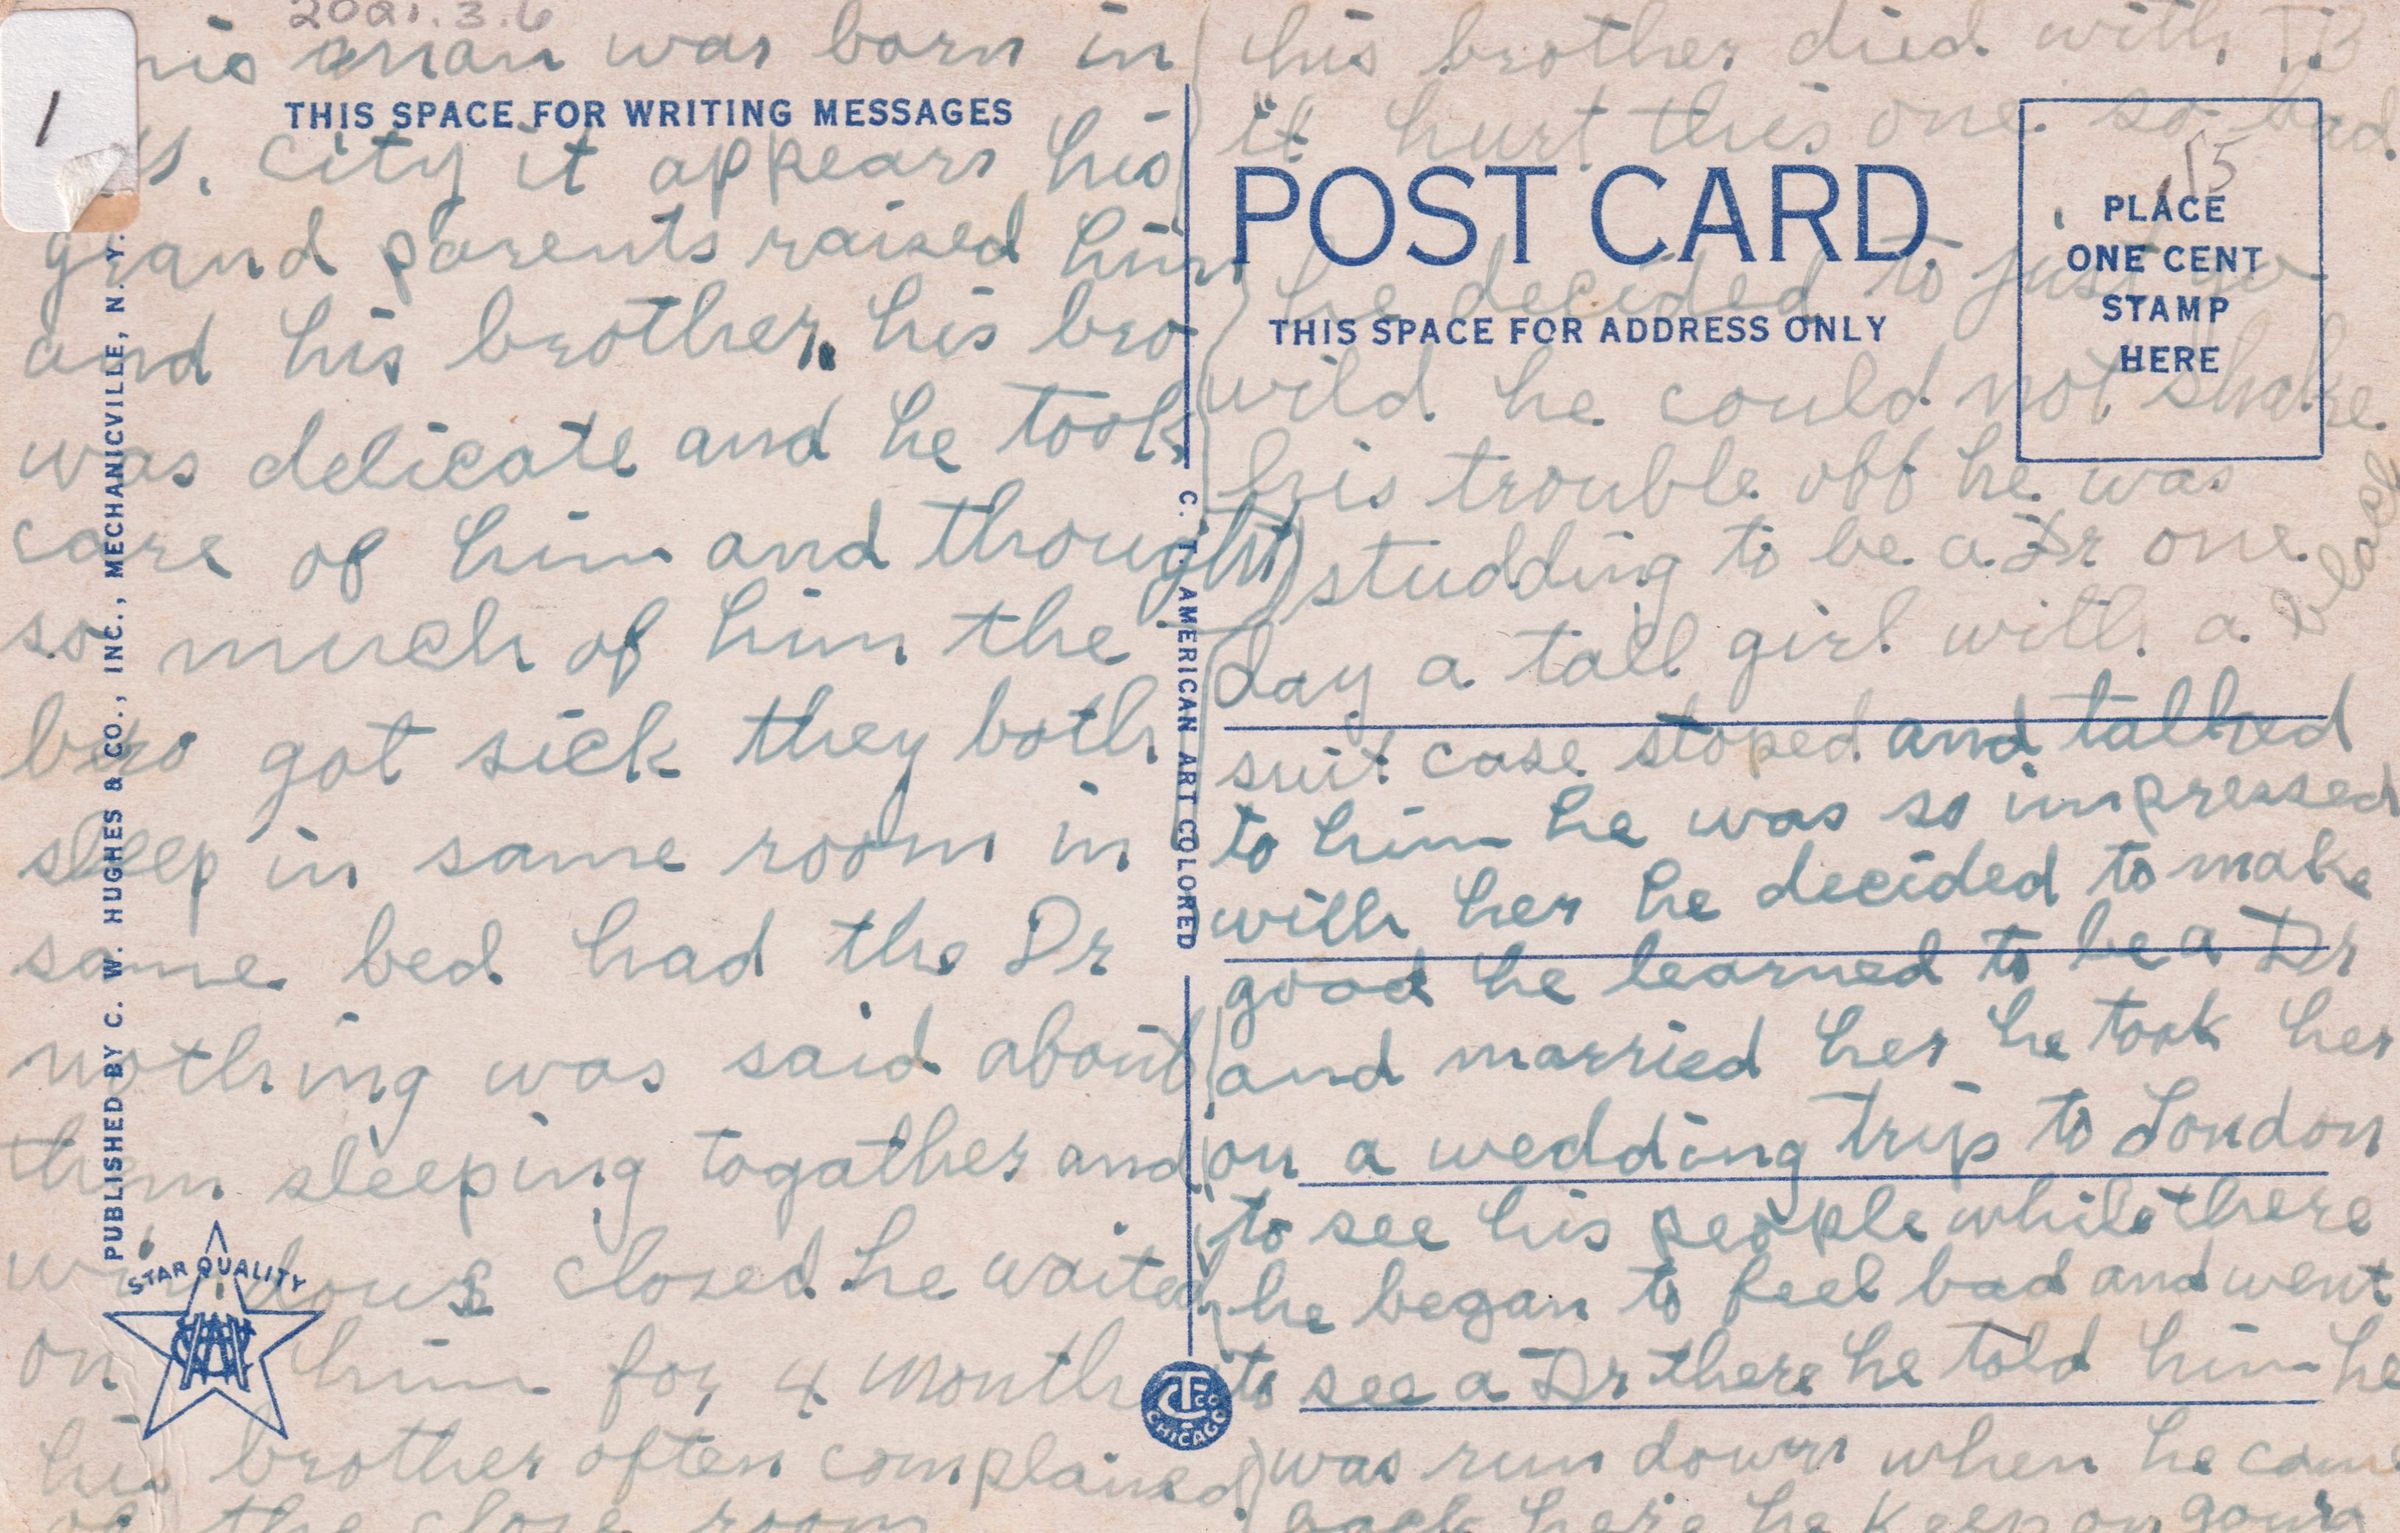 2021.3.6
1
man was born in
THIS SPACE FOR WRITING MESSAGES
city it appears his
grand parents raised him
and his brother, his bro
was delicate and he took
care of him and thought
so much of him the
bro got sick they both
sleep in same room in
same bed had the Dr
nothing was said about
them sleeping togather and
windows closed he waited
on him for 4 months
his brother often complained
of the close room
PUBLISHED BY C. W. HUGHES & CO., INC., MECHANICVILLE, N. Y.
STAR QUALITY
C. T. AMERICAN ART COLORED
CHICAGO
his brother died with TB
it hurt this one so bad
POST CARD
15
PLACE
ONE CENT
STAMP
HERE
he decided to just go
THIS SPACE FOR ADDRESS ONLY
wild he could not shake
his trouble off he was
studding to be a Dr one
day a tall girl with a black
suit case stoped and talked
to him he was so impressed
with her he decided to make
good he learned to be a Dr
and married her he took her
on a wedding trip to London
to see his people while there
he began to feel bad and went
to see a Dr there he told him he
was run down when he came
back here he keep on going